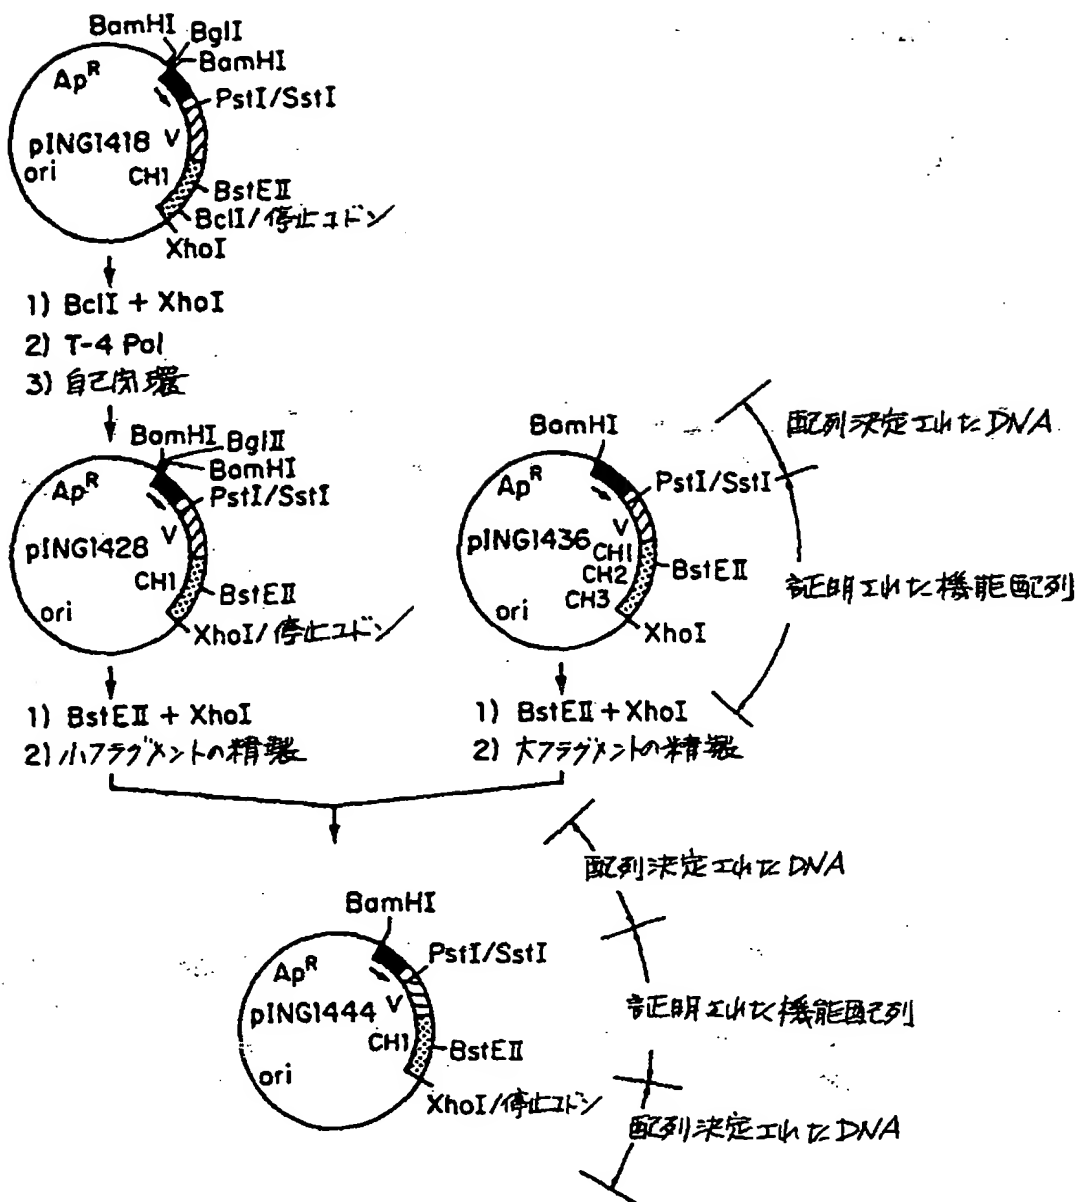 BamHI
BglI
BamHI
Ap^R
PstI/SstI
pING1418
V
ori
CH1
BstEII
BclI/停止コドン
XhoI
1) BclI + XhoI
2) T-4 Pol
3) 自己閉環
BamHI
BglII
BamHI
Ap^R
PstI/SstI
V
pING1428
CH1
BstEII
ori
XhoI/停止コドン
1) BstEII + XhoI
2) 小フラグメントの精製
BamHI
Ap^R
PstI/SstI
V
pING1436
CH1
CH2
BstEII
CH3
ori
XhoI
1) BstEII + XhoI
2) 大フラグメントの精製
配列決定されたDNA
証明された機能配列
BamHI
Ap^R
PstI/SstI
pING1444
V
CH1
BstEII
ori
XhoI/停止コドン
配列決定されたDNA
証明された機能配列
配列決定されたDNA